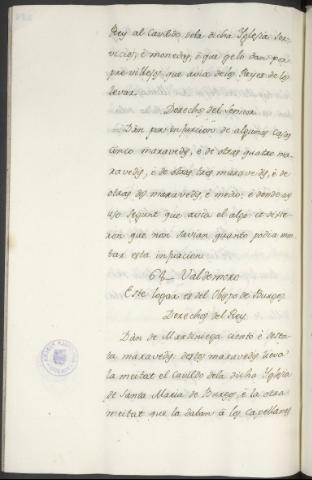 Rey al Cavildo dela dicha Yglesia Ser-
vicios, è monedas, ò que gelo dan por
previllejos que avia delos Reyes de los
levar.
Derechos del Sennor.
Dan por infurcion de algunas casas
cinco maravedis, è de otras quatro ma-
ravedis, è de otras tres maravedis, è de
otras dos maravedis, è medio; è donde ay
uso segunt que avia el algo: et dixe-
ron que non savian quanto podia mon-
tar esta infurcion.
64 Valdemoro
Este logar es del Obispo de Burgos
Derechos del Rey.
Dan de Martiniega ciento è sesen-
ta maravedis: destos maravedis lieva
la meitat el Cavildo dela dicha Yglesia
de Santa Maria de Burgos, è la otra
meitat que la daban à los Capellanes